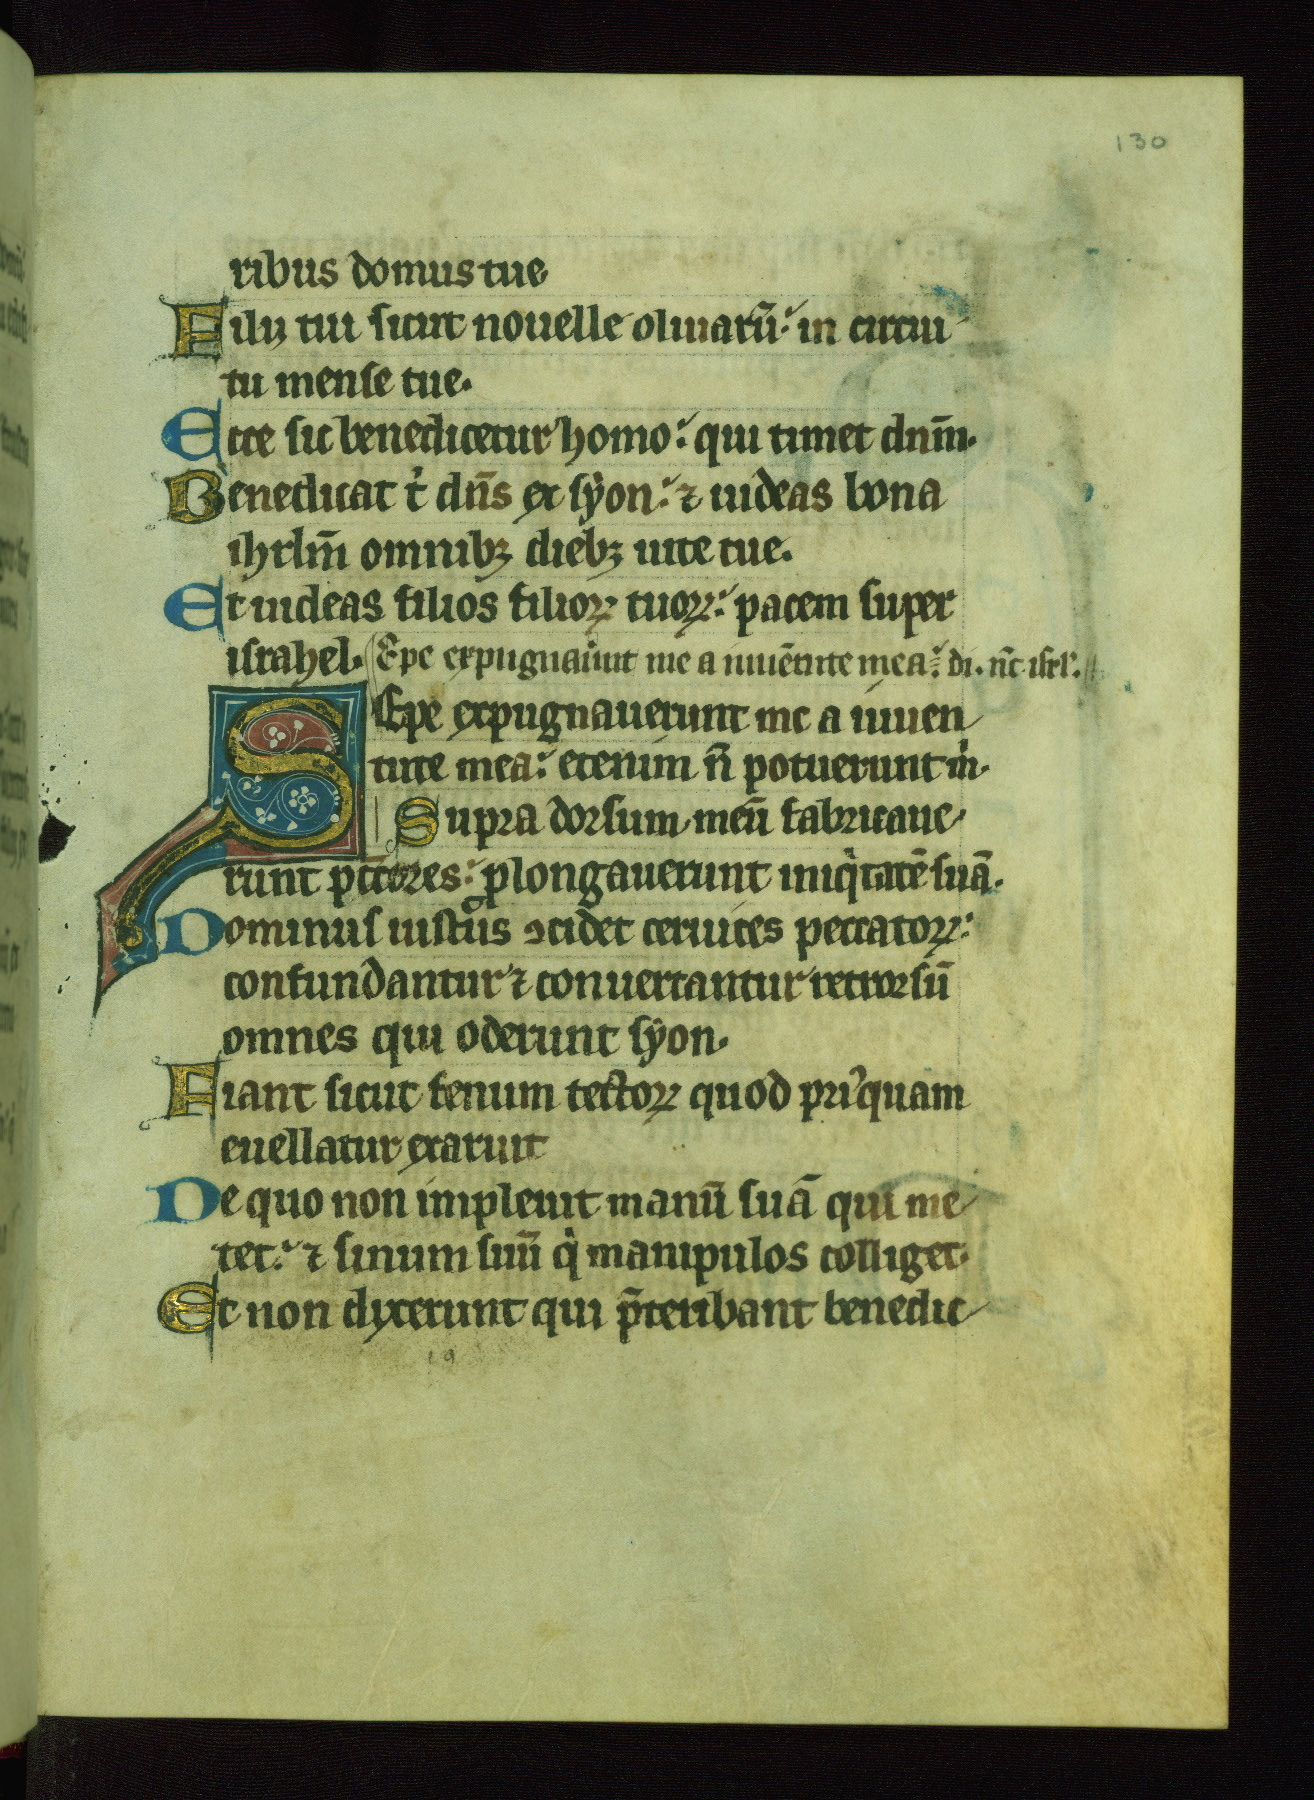 130
ribus domus tue
Filij tui sicut nouelle oliuarū: in circui
tu mense tue.
Ecce sic benedicetur homo: qui timet dnm̄.
Benedicat t' dn̄s ex syon: ⁊ uideas bona
ihrlm̄ omnibꝫ diebꝫ uite tue.
Et uideas filios filioꝝ tuoꝝ: pacem super
israhel. Sepe expugnauiut me a iuuētute mea: di. nc̄ isrl'.
SEpe expugnauerunt me a iuuen
tute mea: etenim n̄ potuerunt m.
Supra dorsum meū fabricaue
runt pctōres: plongauerunt iniqitatē suā.
Dominus iustus ꝯcidet ceruices peccatoꝝ:
confundantur ⁊ conuertantur retrorsū
omnes qui oderunt syon.
Fiant sicut fenum tectoꝝ quod pri'quam
euellatur exaruit
De quo non impleuit manū suā qui me
tet: ⁊ sinum suū q manipulos colliget.
Et non dixerunt qui p̄teribant benedic